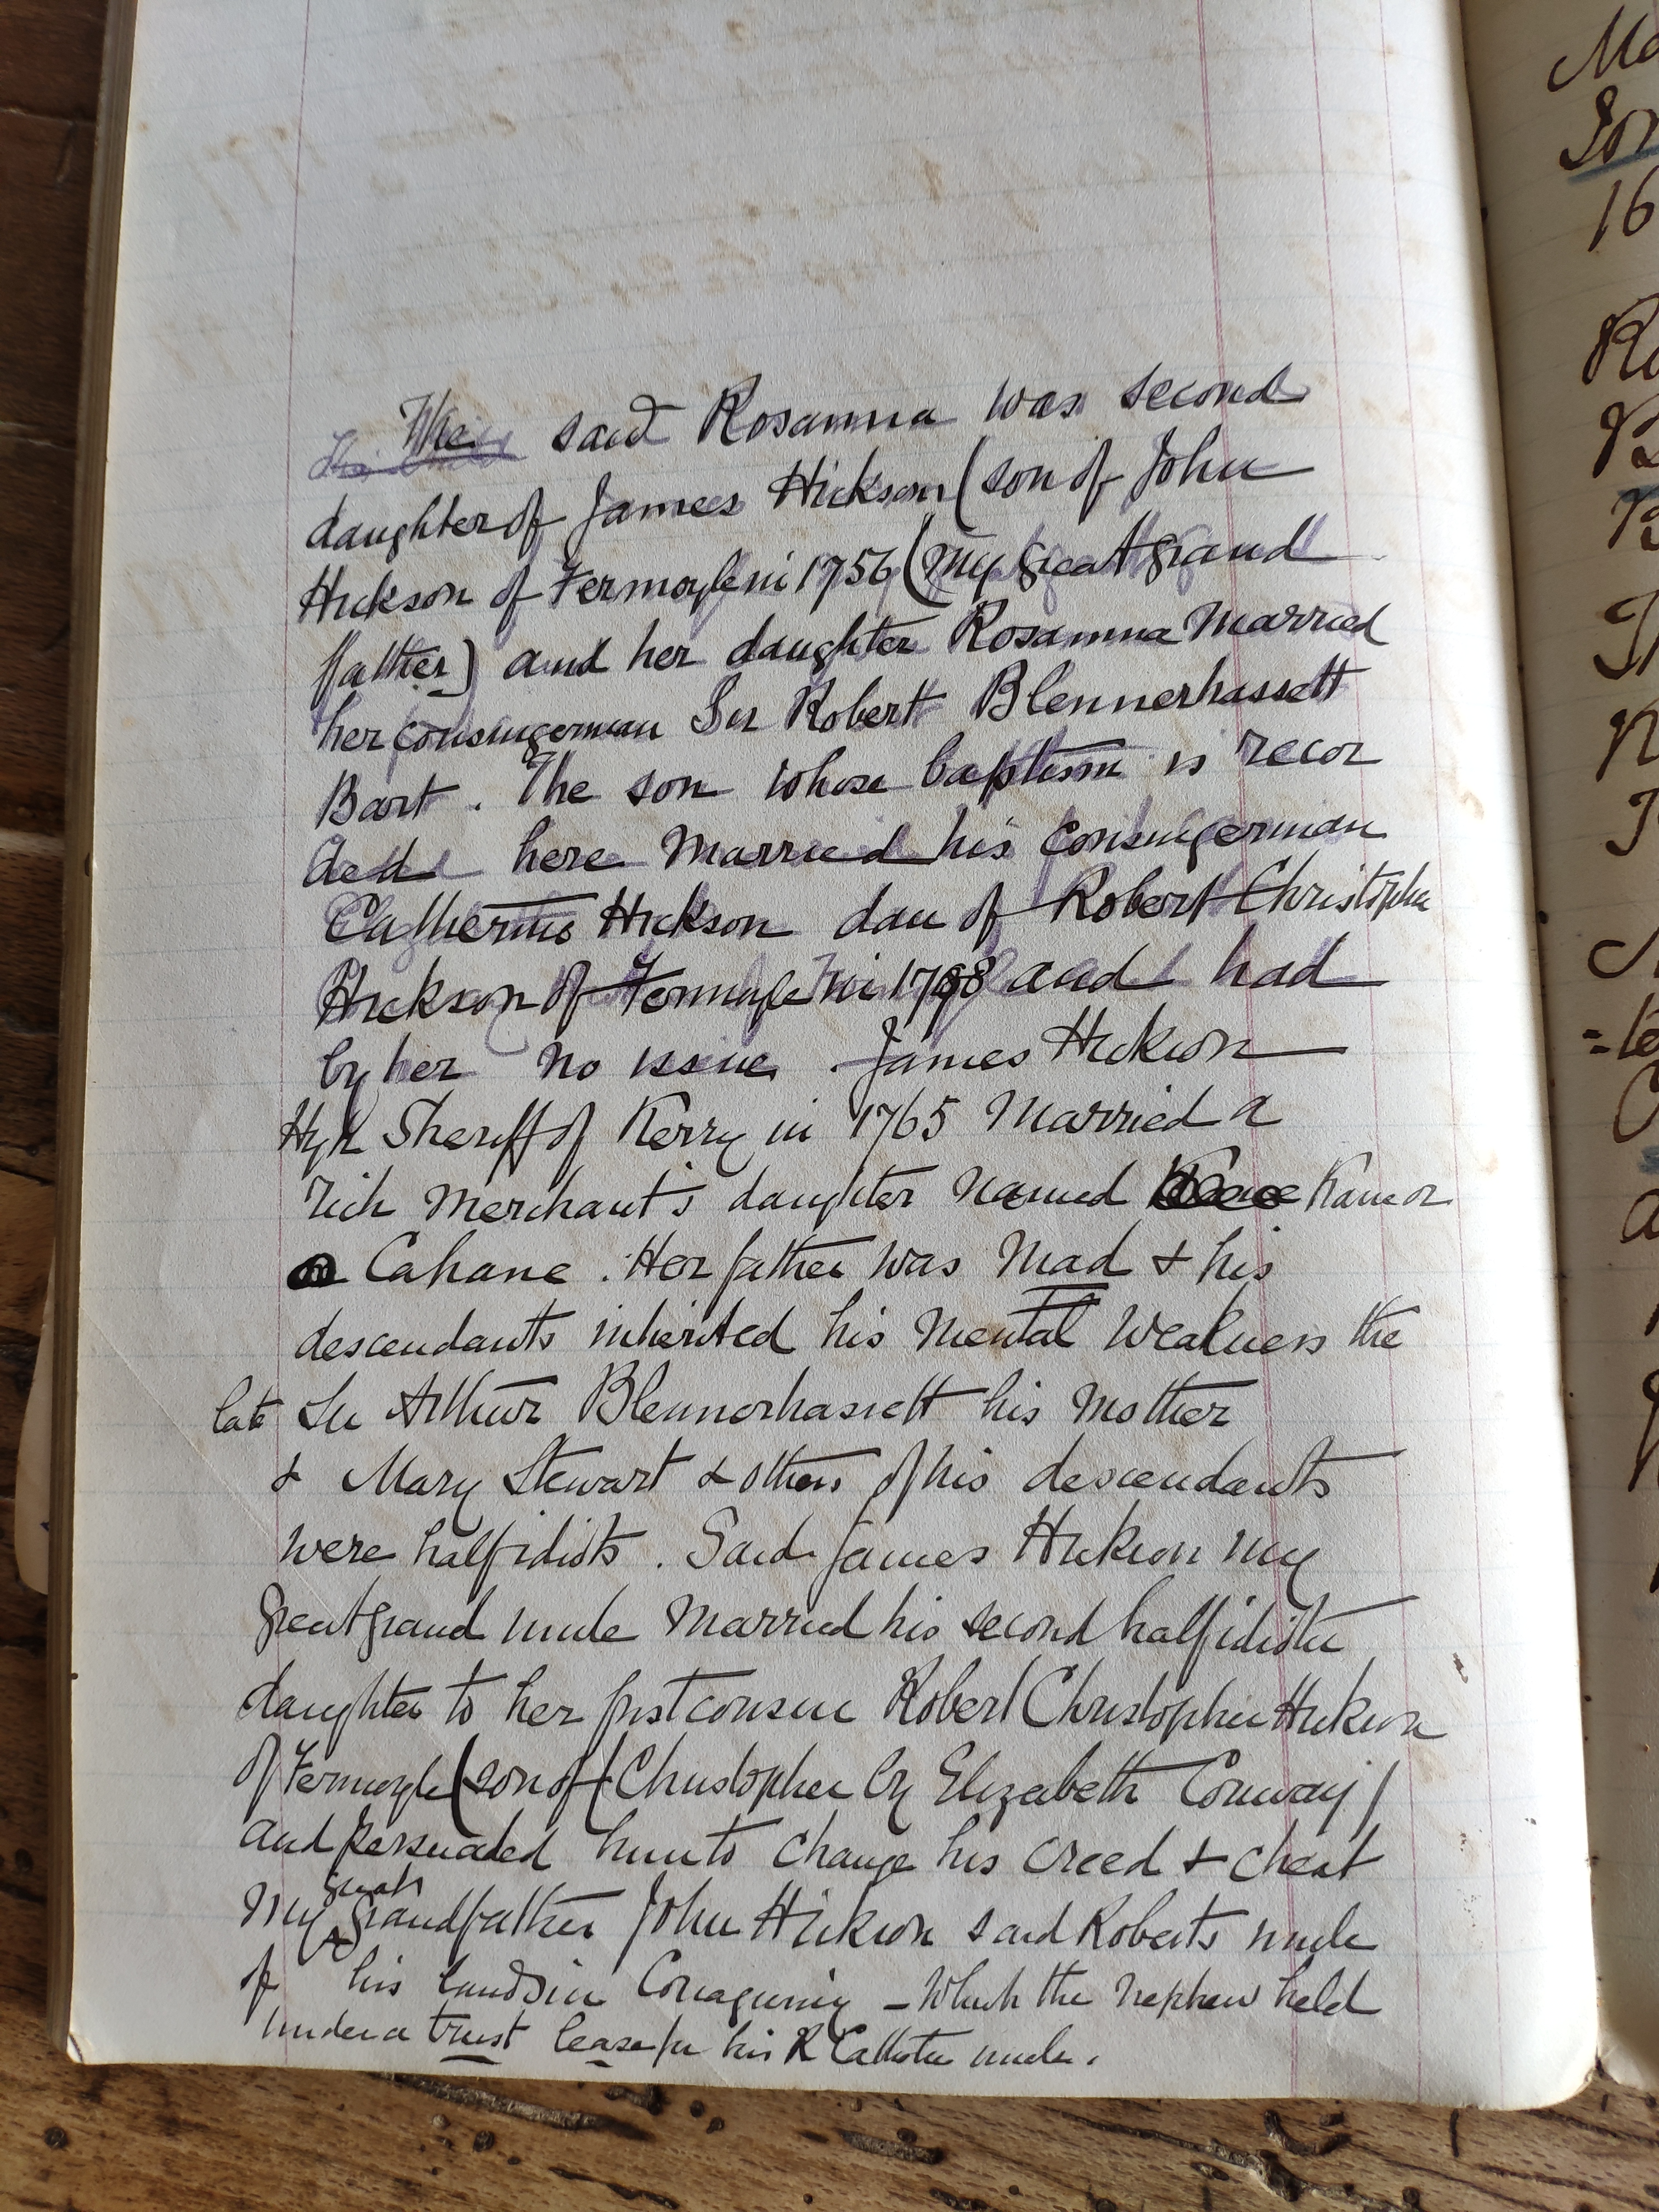 The said Rosanna was second
daughter of James Hickson (son of John
Hickson of Fermoyle in 1756 (my great grand
father) and her daughter Rosanna Married
her cousingerman Sir Robert Blennerhassett
Bart. The son whose baptism is recor
ded here Married his cousingerman
Catherine Hickson dau of Robert Christopher
Hickson of Fermoyle in 1798 and had
by her no issue. James Hickson
High Sheriff of Kerry in 1765 Married a
rich Merchant's daughter Named Kane or
Cahane. Her father was Mad & his
descendants inherited his Mental Weakness the
late Sir Arthur Blennerhassett his Mother
& Mary Stewart & others of his descendants
were half idiots. Said James Hickson my
great grand uncle Married his second half idiotic
daughter to her first cousin Robert Christopher Hickson
of Fermoyle (son of (Christopher by Elizabeth Conway)
and persuaded him to change his creed & cheat
my great grandfather John Hickson said Roberts uncle
of his lands in - Which the nephew held
under a trust lease for his R Catholic uncle.
Ma
16
Ro
B
B